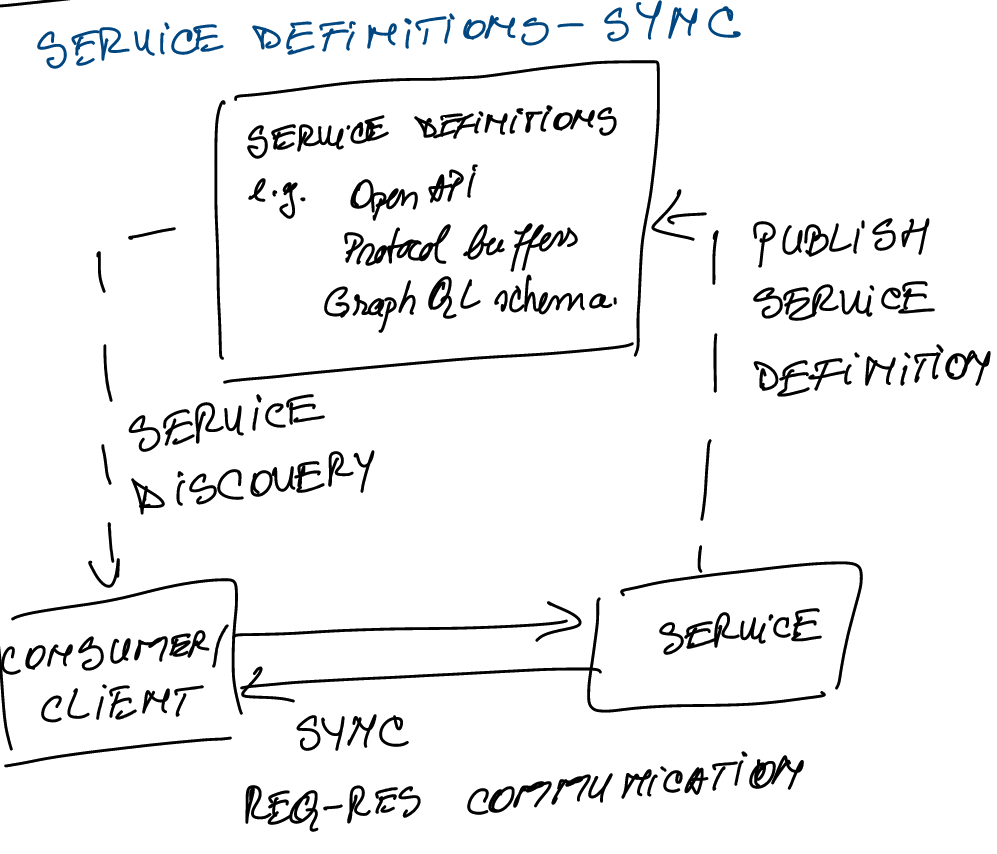 SERVICE DEFINITIONS - SYNC
SERVICE DEFINITIONS
e.g. Open API
Protocol buffers
Graph QL schema.
PUBLISH
SERVICE
DEFINITION
SERVICE
DISCOVERY
CONSUMER/
CLIENT
SERVICE
SYNC
REQ-RES COMMUNICATION